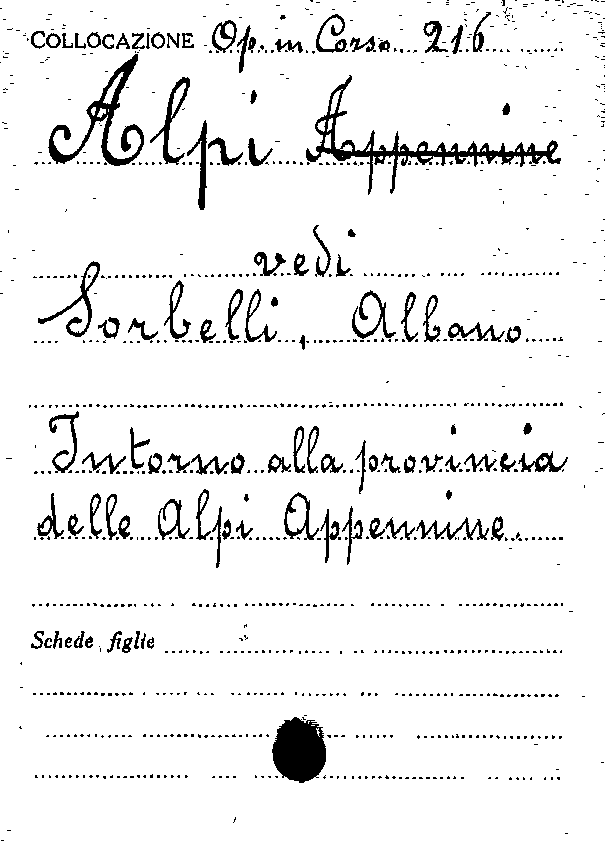 COLLOCAZIONE Op. in Corso 216
Alpi Appennine
vedi
Sorbelli, Albano
Intorno alla provincia
delle Alpi Appennine.
Schede figlie